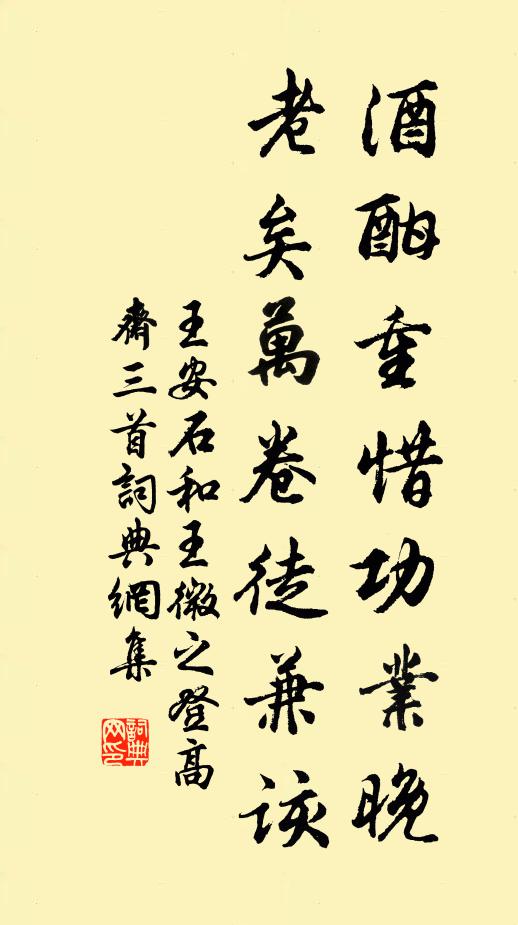 酒酣重惜功業晚
老矣萬卷徒兼該
王安石和王微之登高
齋三首詞典網集
詞典
网印